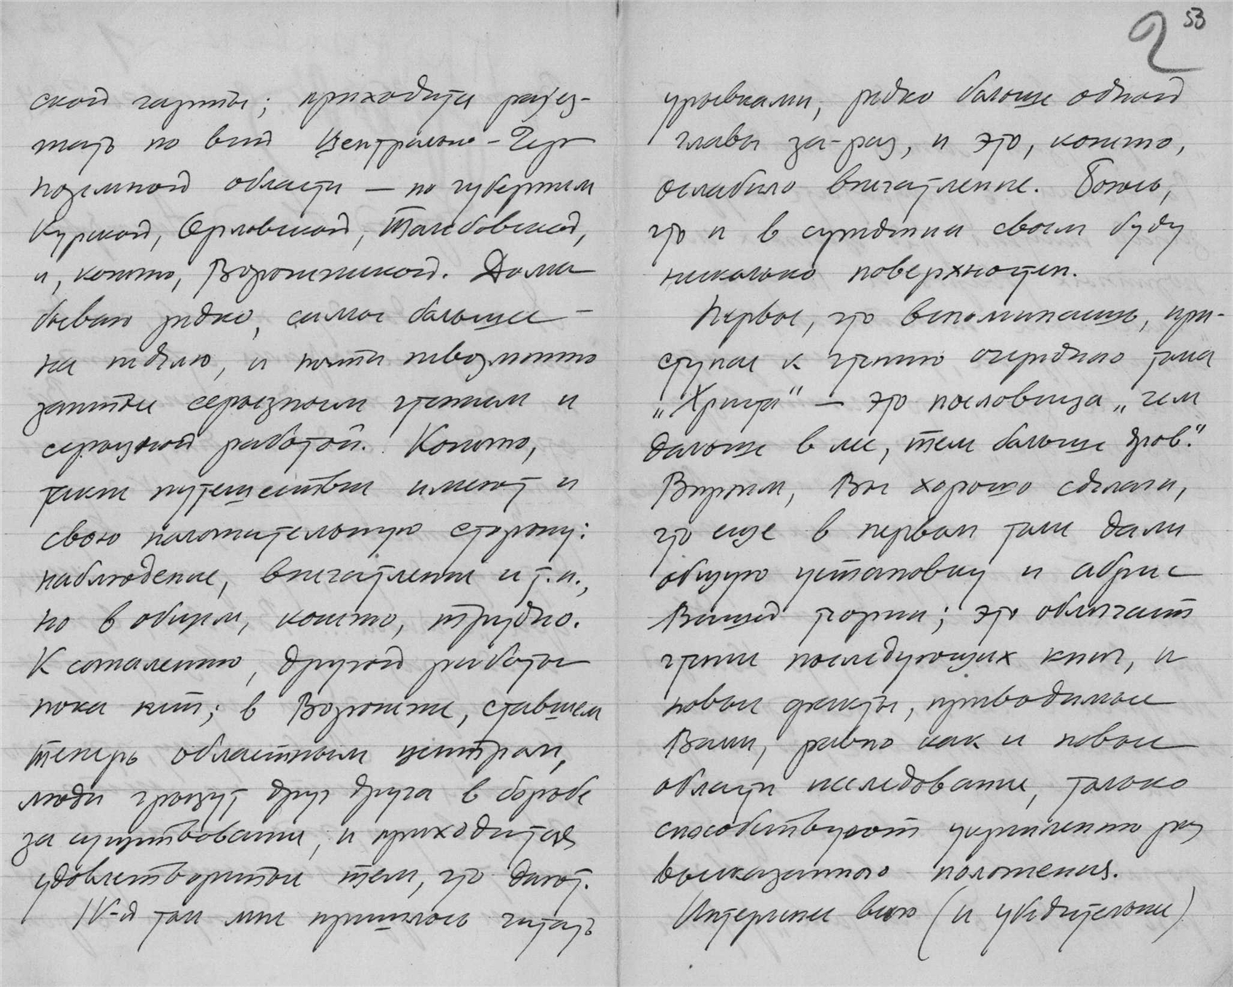 ской газеты; приходится разъез-
жать по всей Центрально-Чер
ноземной области — по губерниям
Курской, Орловской, Тамбовской,
и, конечно, Воронежской. Дома
бываю редко, самое большее —
на неделю, и почти невозможно
заняться серьезным чтением и
серьезной работой. Конечно,
такие путешествия имеют и
свою положительную сторону:
наблюдение, впечатления и т.п.,
но в общем, конечно, трудно.
К сожалению, другой работы
пока нет; в Воронеже, ставшем
теперь областным центром,
люди грызут друг друга в борьбе
за существование, и приходится
удовлетворяться тем, что дают.
IV-й том мне пришлось читать
2 53
урывками, редко больше одной
главы за-раз, и это, конечно,
ослабило впечатление. Боюсь,
что и в суждении своем буду
несколько поверхностен.
Первое, что вспоминаешь, при-
ступая к чтению очередного тома
„Христа“ — это пословица „чем
дальше в лес, тем больше дров“.
Впрочем, Вы хорошо сделали,
что еще в первом томе дали
общую установку и абрис
Вашей теории; это облегчает
чтение последующих книг, и
новые факты, приводимые
Вами, равно как и новые
области исследования, только
способствуют укреплению раз
высказанного положения.
Интереснее всего (и убедительнее)